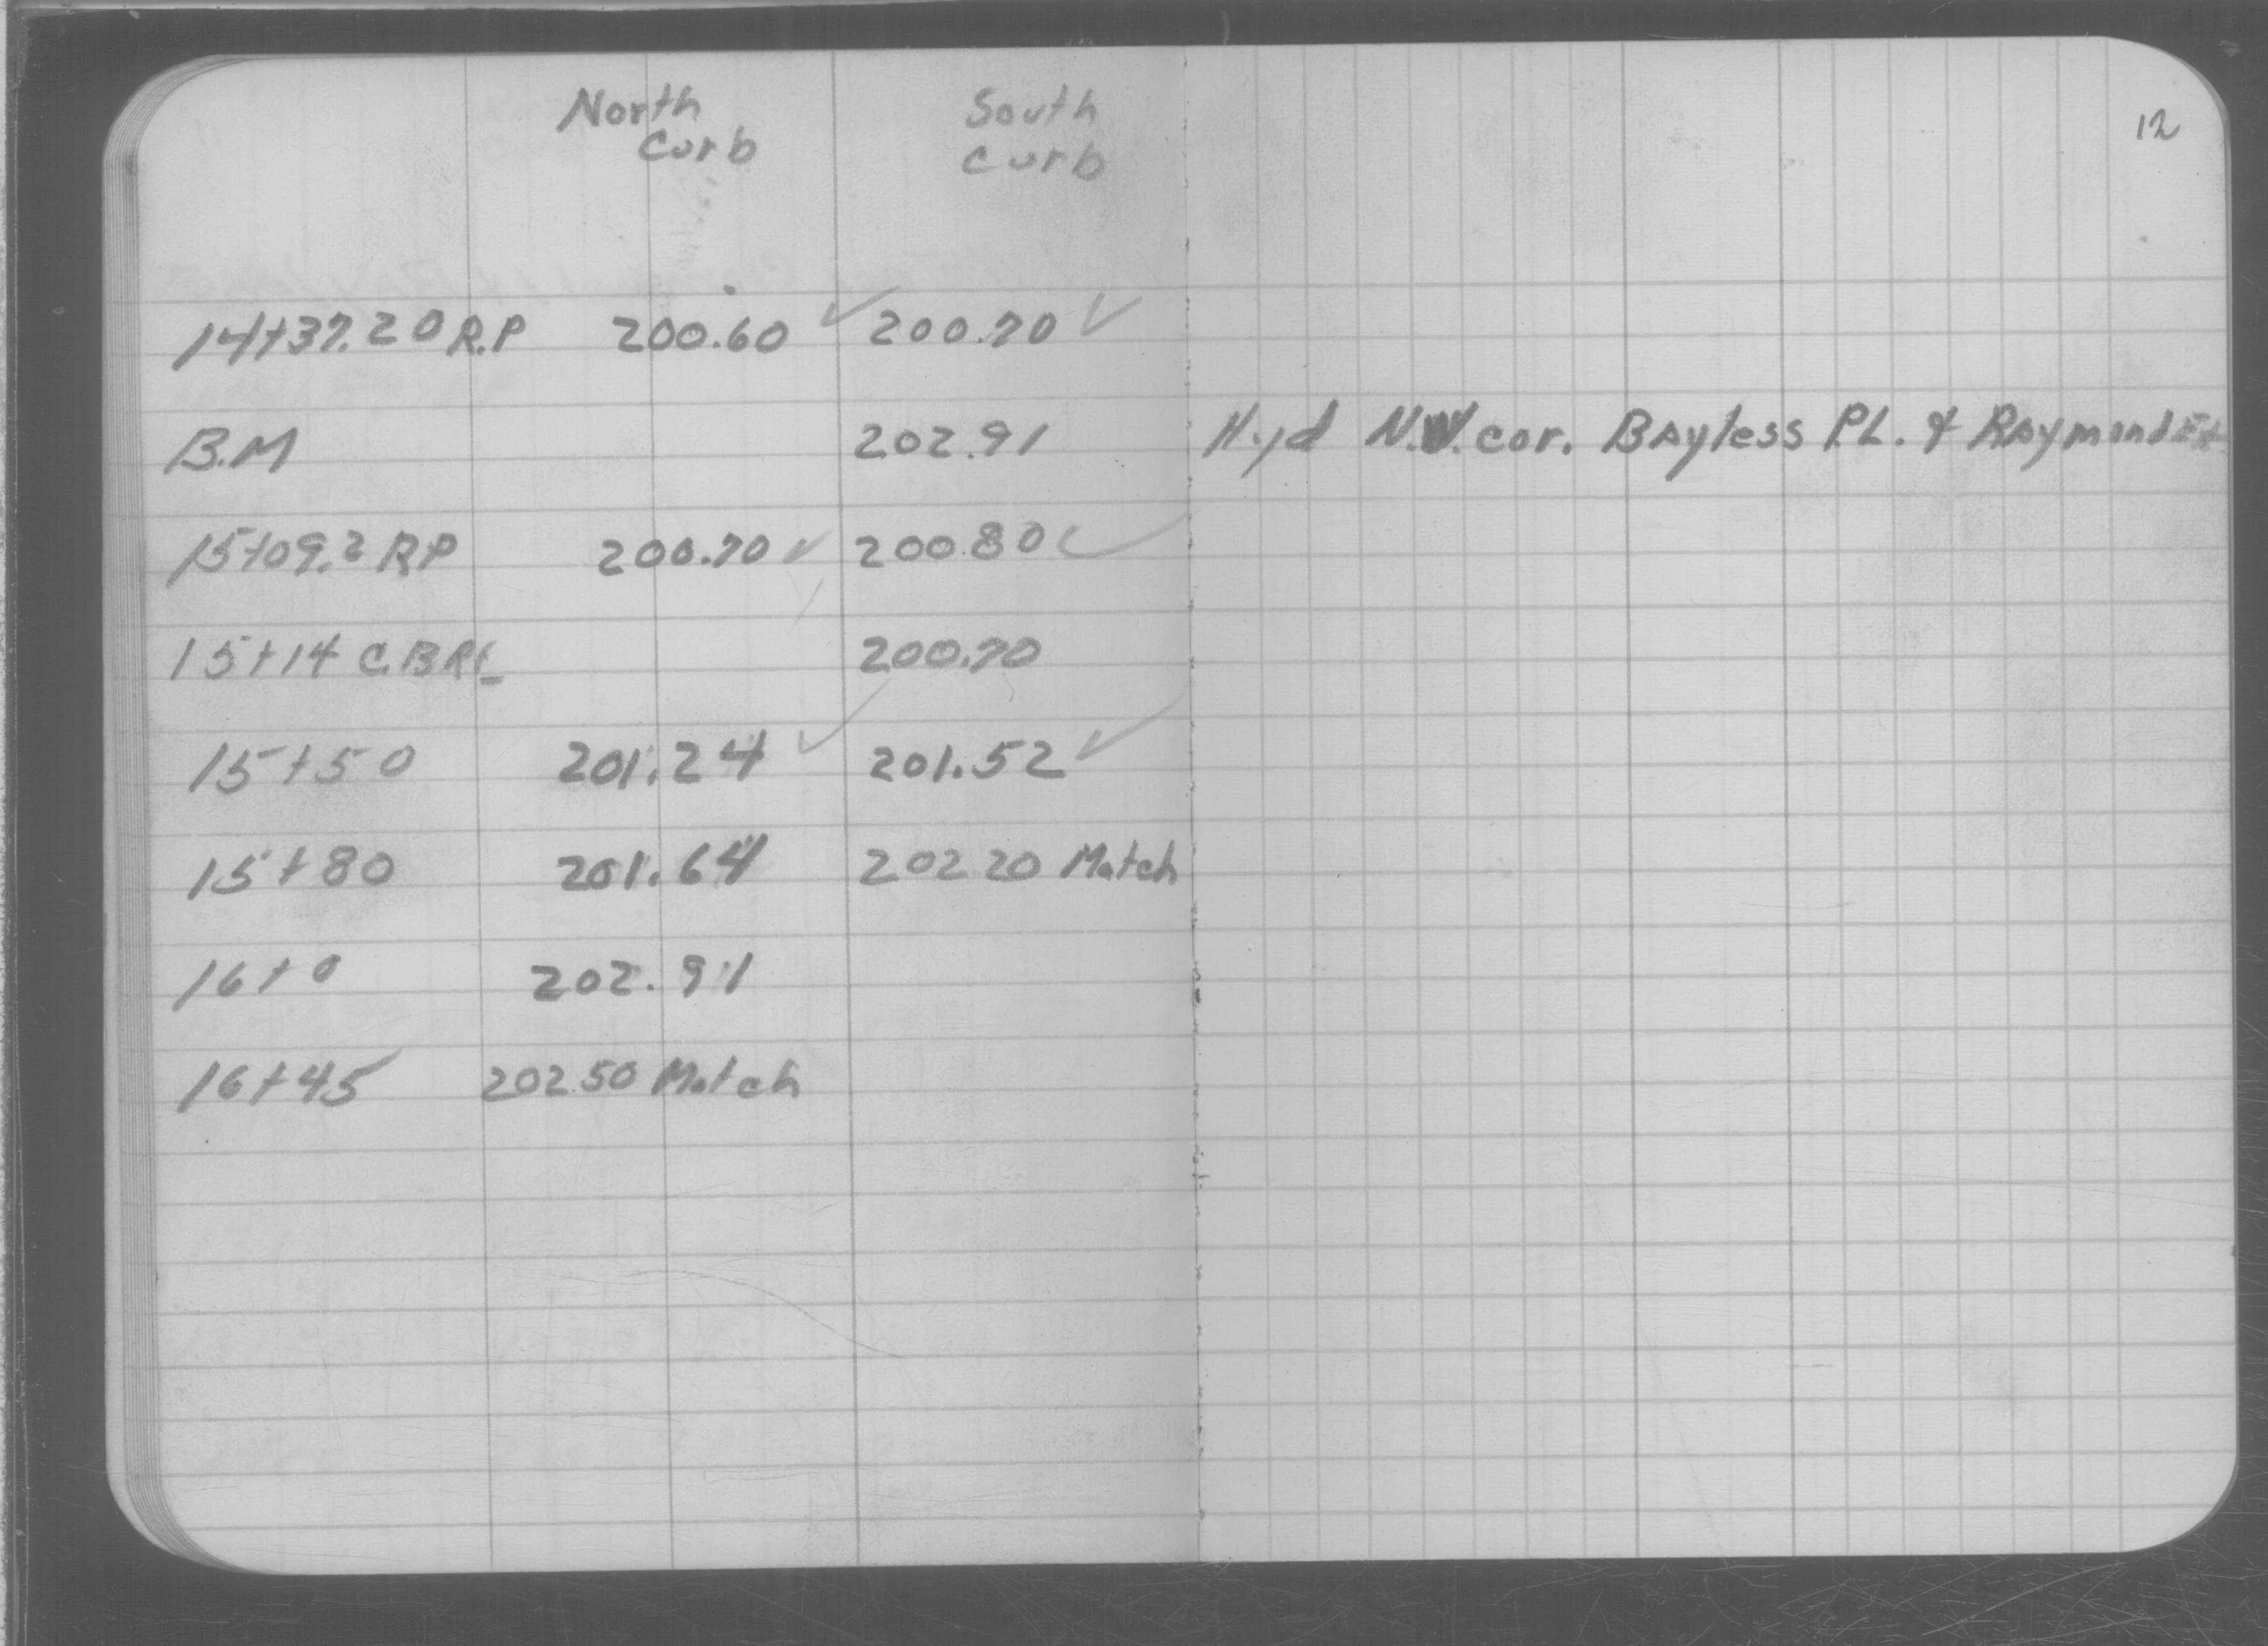 12
North South
Curb Curb
14+37.20 R.P 200.60 ✓ 200.70 ✓
B.M 202.91 Hyd N.W. cor. Bayless PL. & Raymond
15+09.2 RP 200.70 ✓ 200.80 ✓
15+14 C.B 200.70
15+50 201.24 ✓ 201.52 ✓
15+80 201.64 202.20 Match
16+0 202.91
16+45 202.50 Match